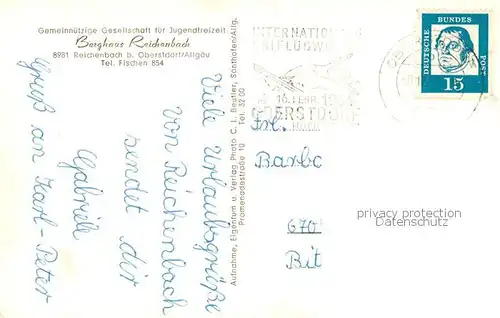 Gemeinnützige Gesellschaft für Jugendfreizeit
Berghaus Reichenbach
8981 Reichenbach b. Oberstdorf/Allgäu
Tel. Fischen 854
Viele Urlaubsgrüße
von Reichenbach
sendet dir
Gabriele
Gruß an Karl-Peter
Aufnahme, Eigentum u. Verlag Photo C. J. Beutler, Sonthofen/Allg.
Promenadestraße 10 Tel. 32 00
INTERNATIONALE
SKIFLUGWO
16. FEBR. 19
OBERSTDORF
DEUTSCHE BUNDES POST
15
Frl.
Barbo
670
Bit
privacy protection
Datenschutz